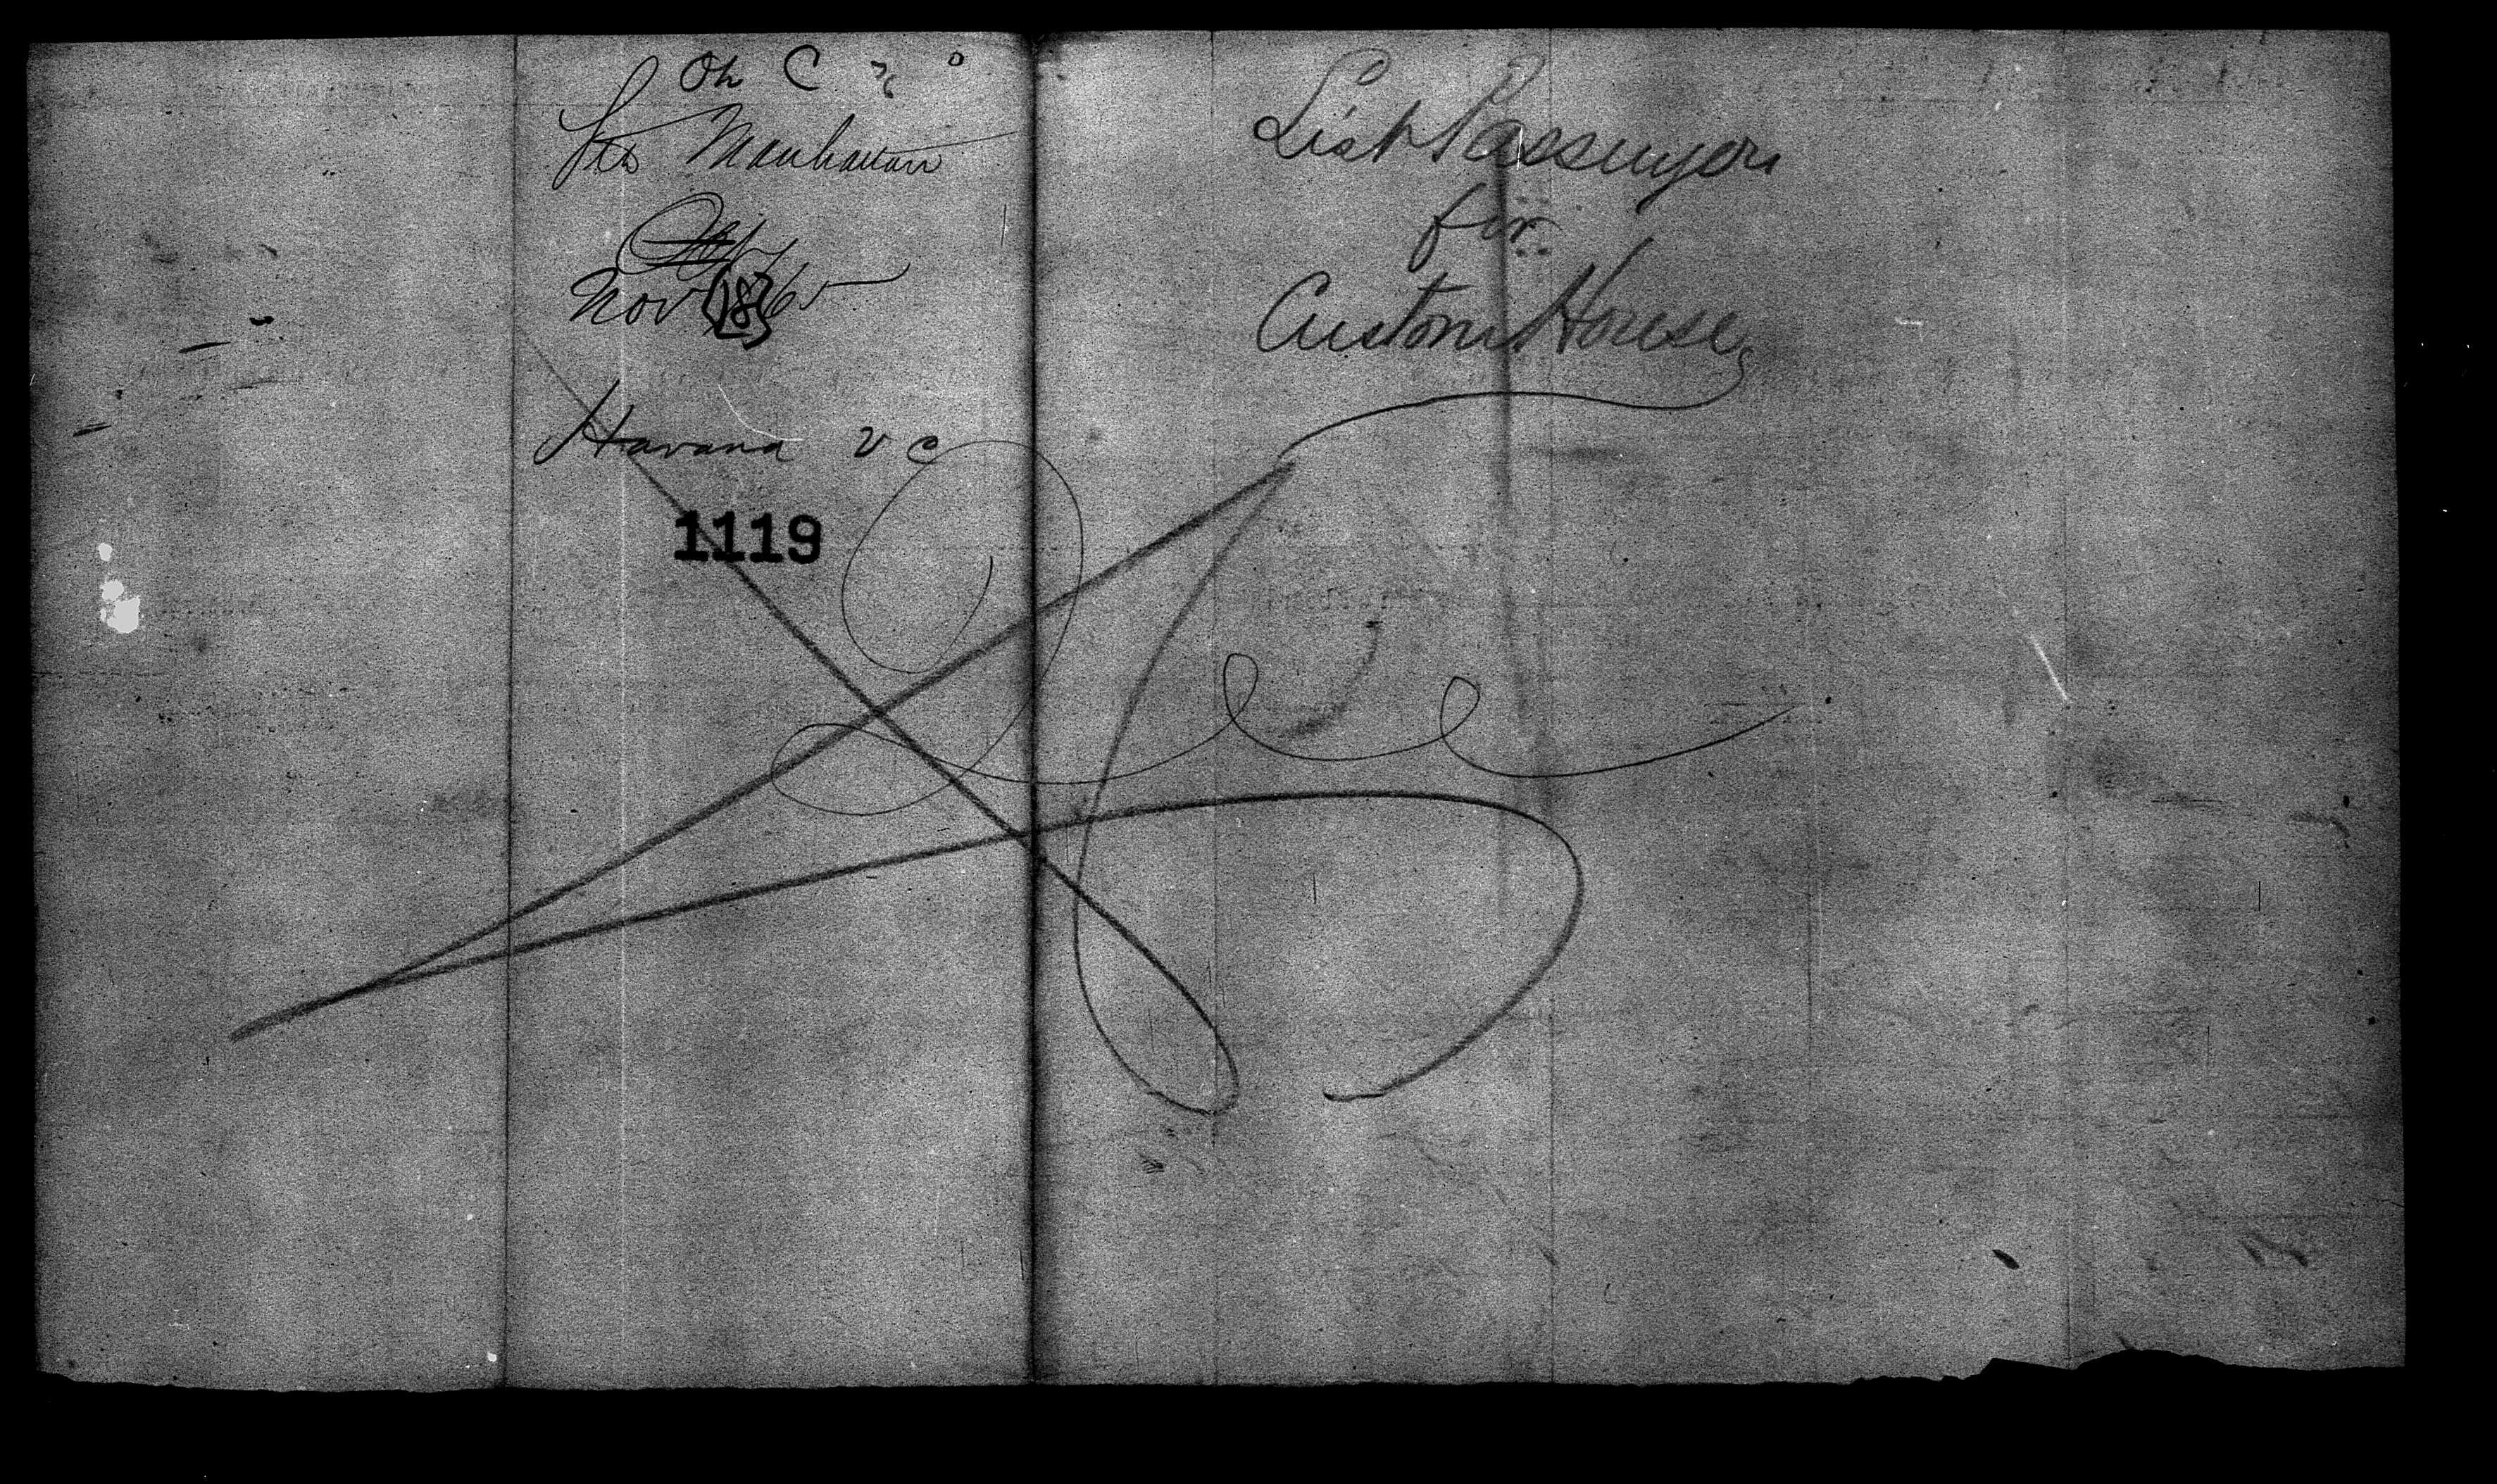 Str Manhattan
Nov 18/65
Havana V C
1119
List Passengers
for
Custom House